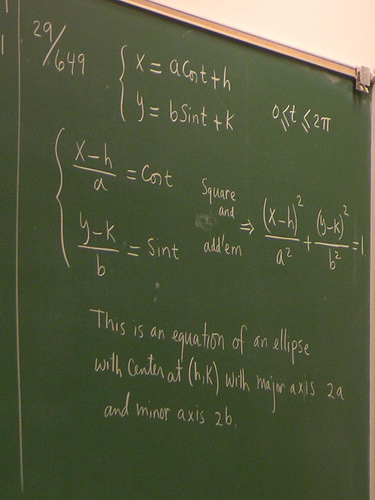 29/649
x = a cost + h
y = b Sint + k
0 ≤ t ≤ 2π
x-h/a = Cost
y-k/b = Sint
Square
and
add'em
⇒ (x-h)²/a² + (y-k)²/b² = 1
This is an equation of an ellipse
with center at (h,k) with major axis 2a
and minor axis 2b.